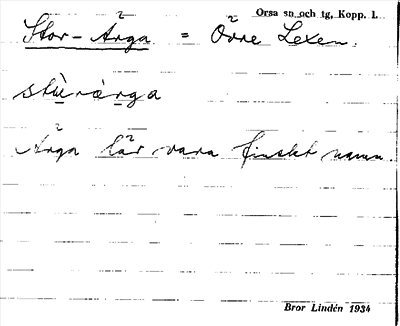 Orsa sn och tg, Kopp. l.
Stor-Ärga = Övre Lexen.
stùrärga
Ärga lär vara finskt namn.
Bror Lindén 1934